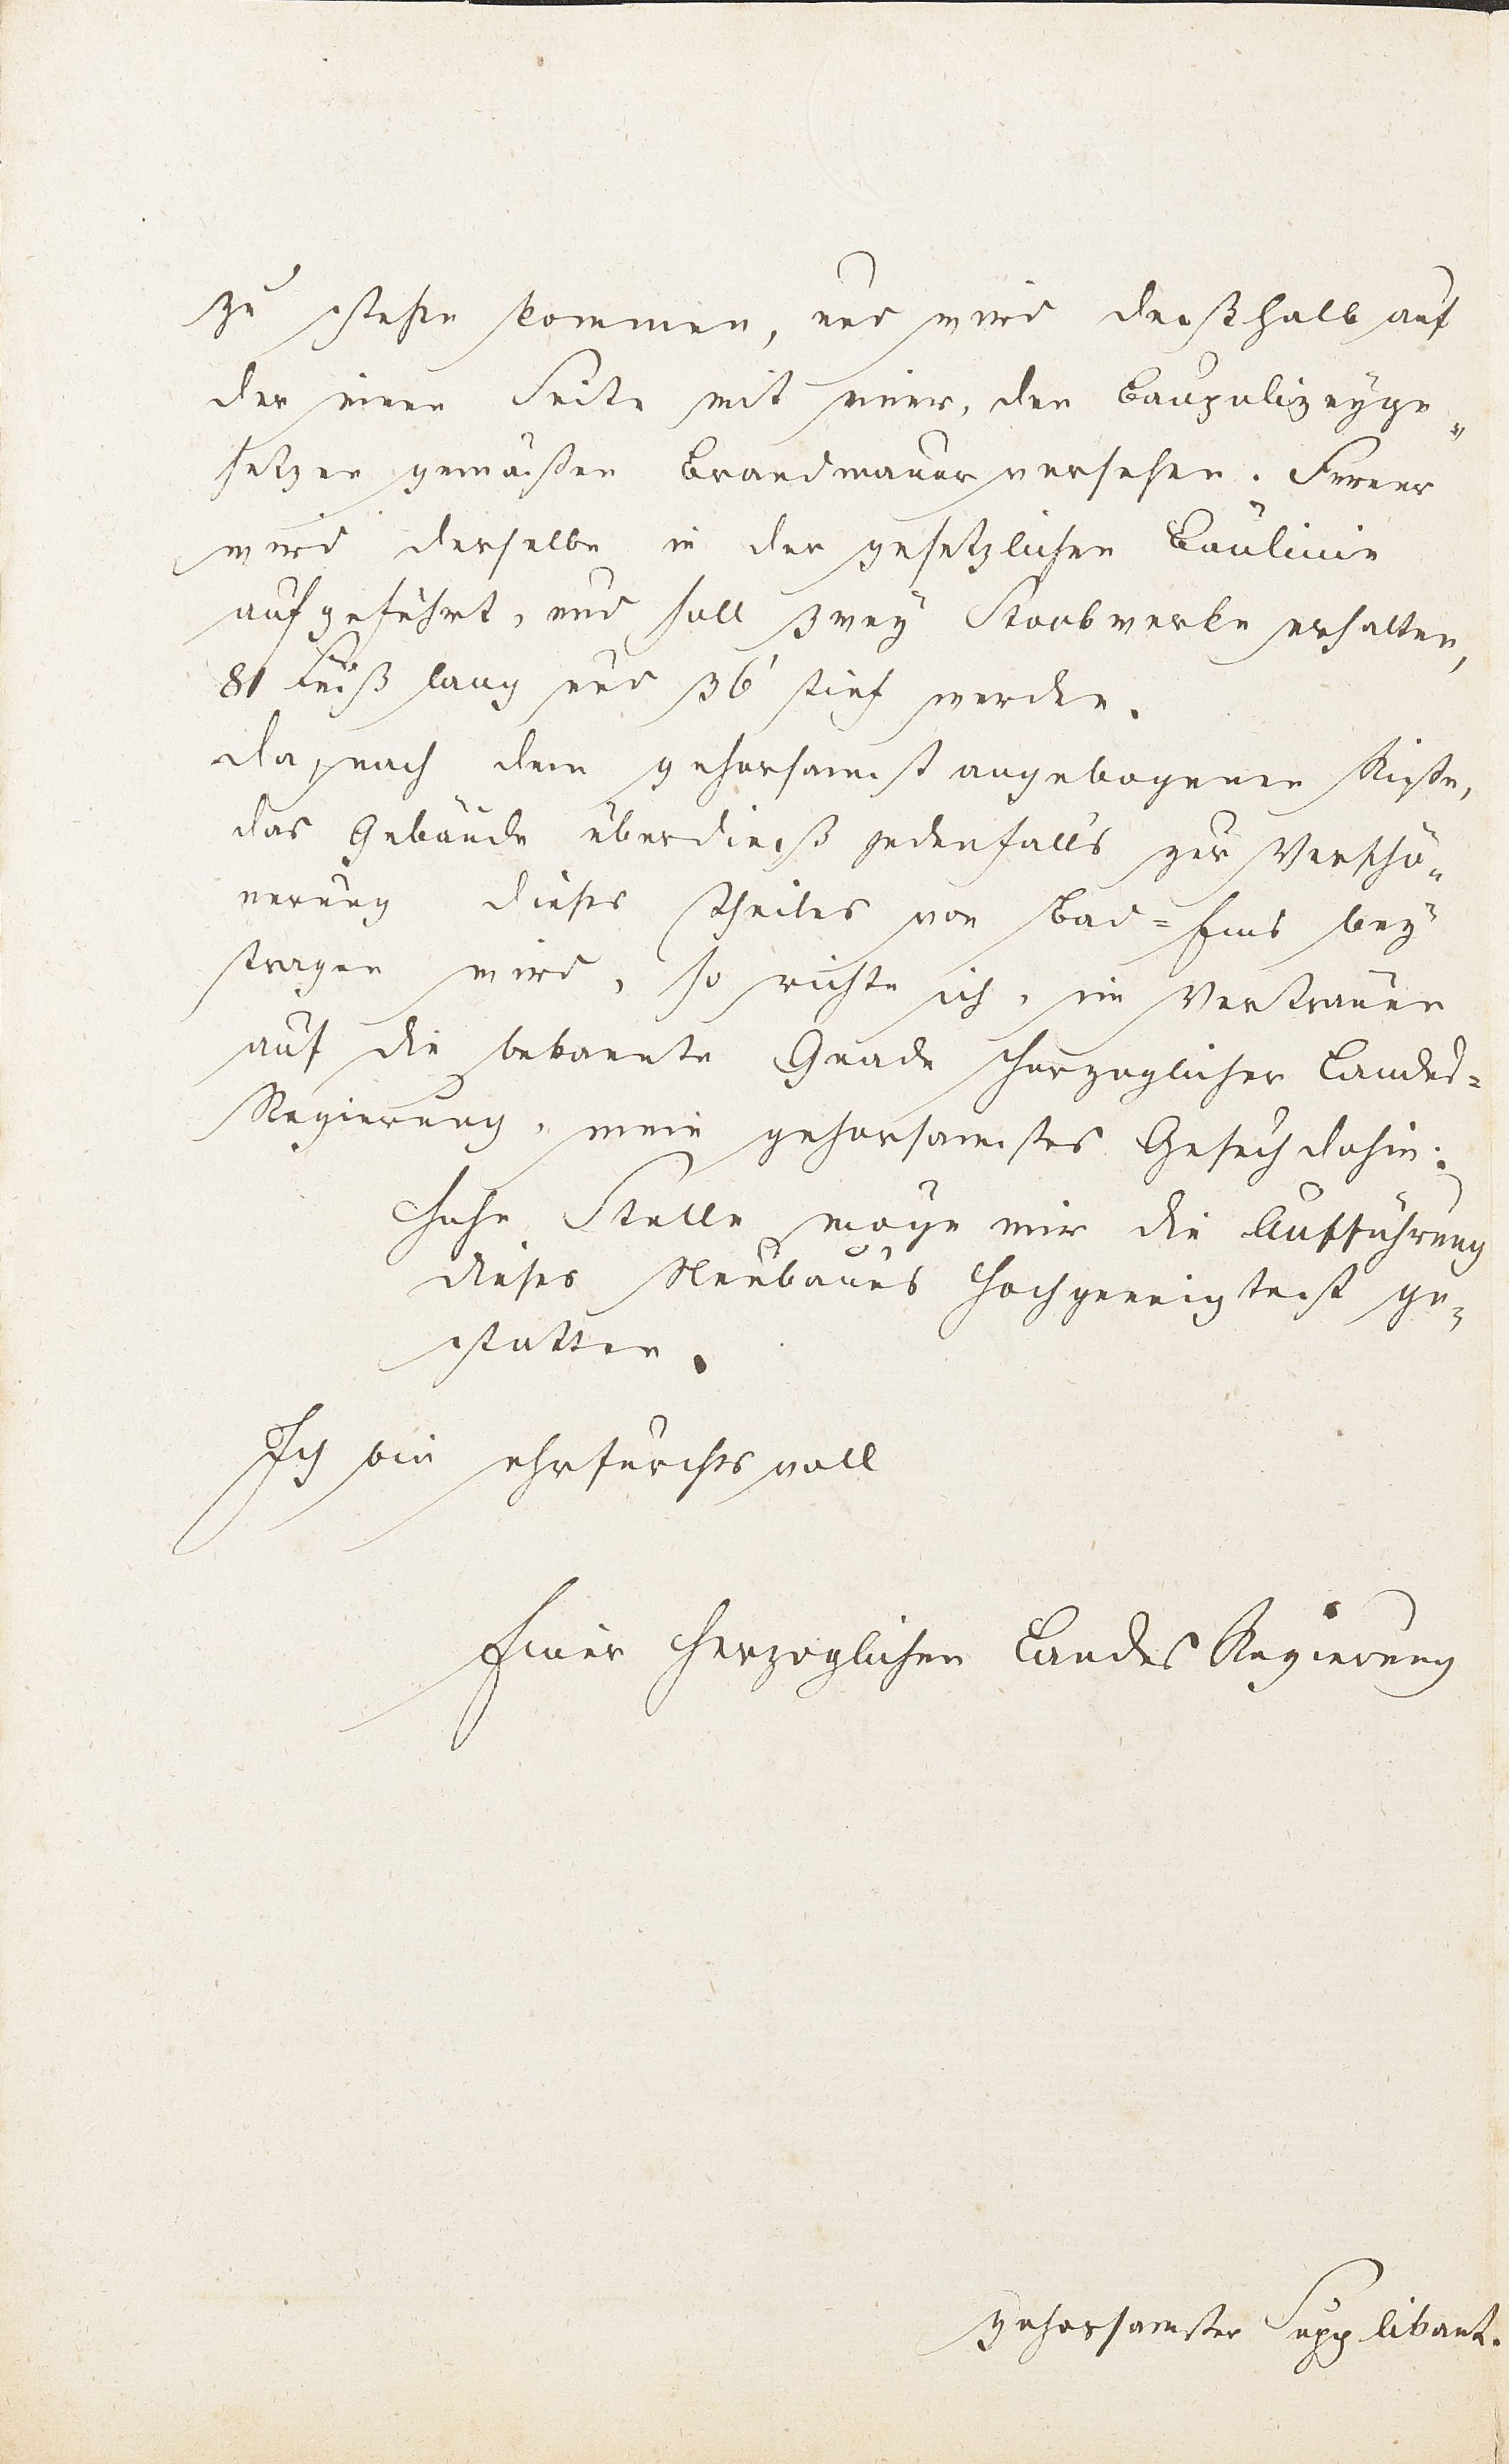 zu stehen kommen, und wird deßhalb auf
der einen Seite mit einer, den Baupolizeyge„
setzen gemäßen Brandmauer versehen. Ferner
wird derselbe in der gesetzlichen Baulinie
aufgeführt, und soll zwey Stockwerke erhalten,
81 Fuß lang und 36' tief werden.
Da, nach dem gehorsamst angebogenen Riße,
das Gebäude überdieß jedenfalls zur Verschö„
nerung dieses Theiles von Bad=Ems bey
tragen wird, so richte ich, im Vertrauen
auf die bekannte Gnade Herzoglicher Landes=
Regierung, mein gehorsamstes Gesuch dahin:
Hohe Stelle möge mir die Aufführung
dieses Neubaues hochgeneigtest ge„
statten.
Ich bin ehrfurchtsvoll
Einer Herzoglichen Landes Regierung
gehorsamster Supplikant.